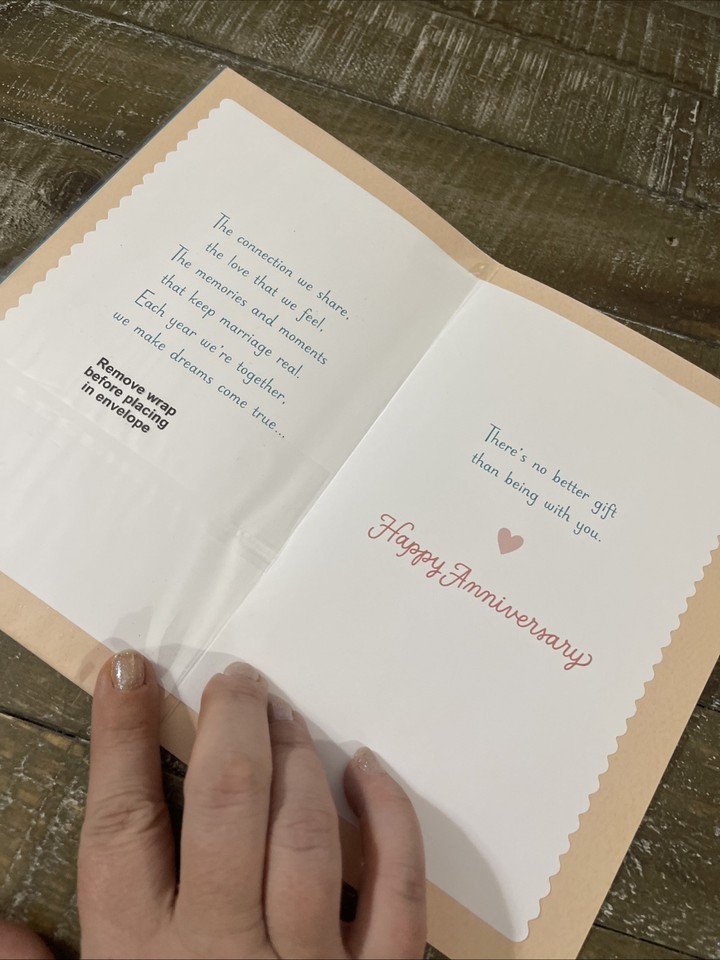 The connection we share,
the love that we feel,
The memories and moments
that keep marriage real.
Each year we're together,
we make dreams come true...
Remove wrap
before placing
in envelope
There's no better gift
than being with you.
Happy Anniversary